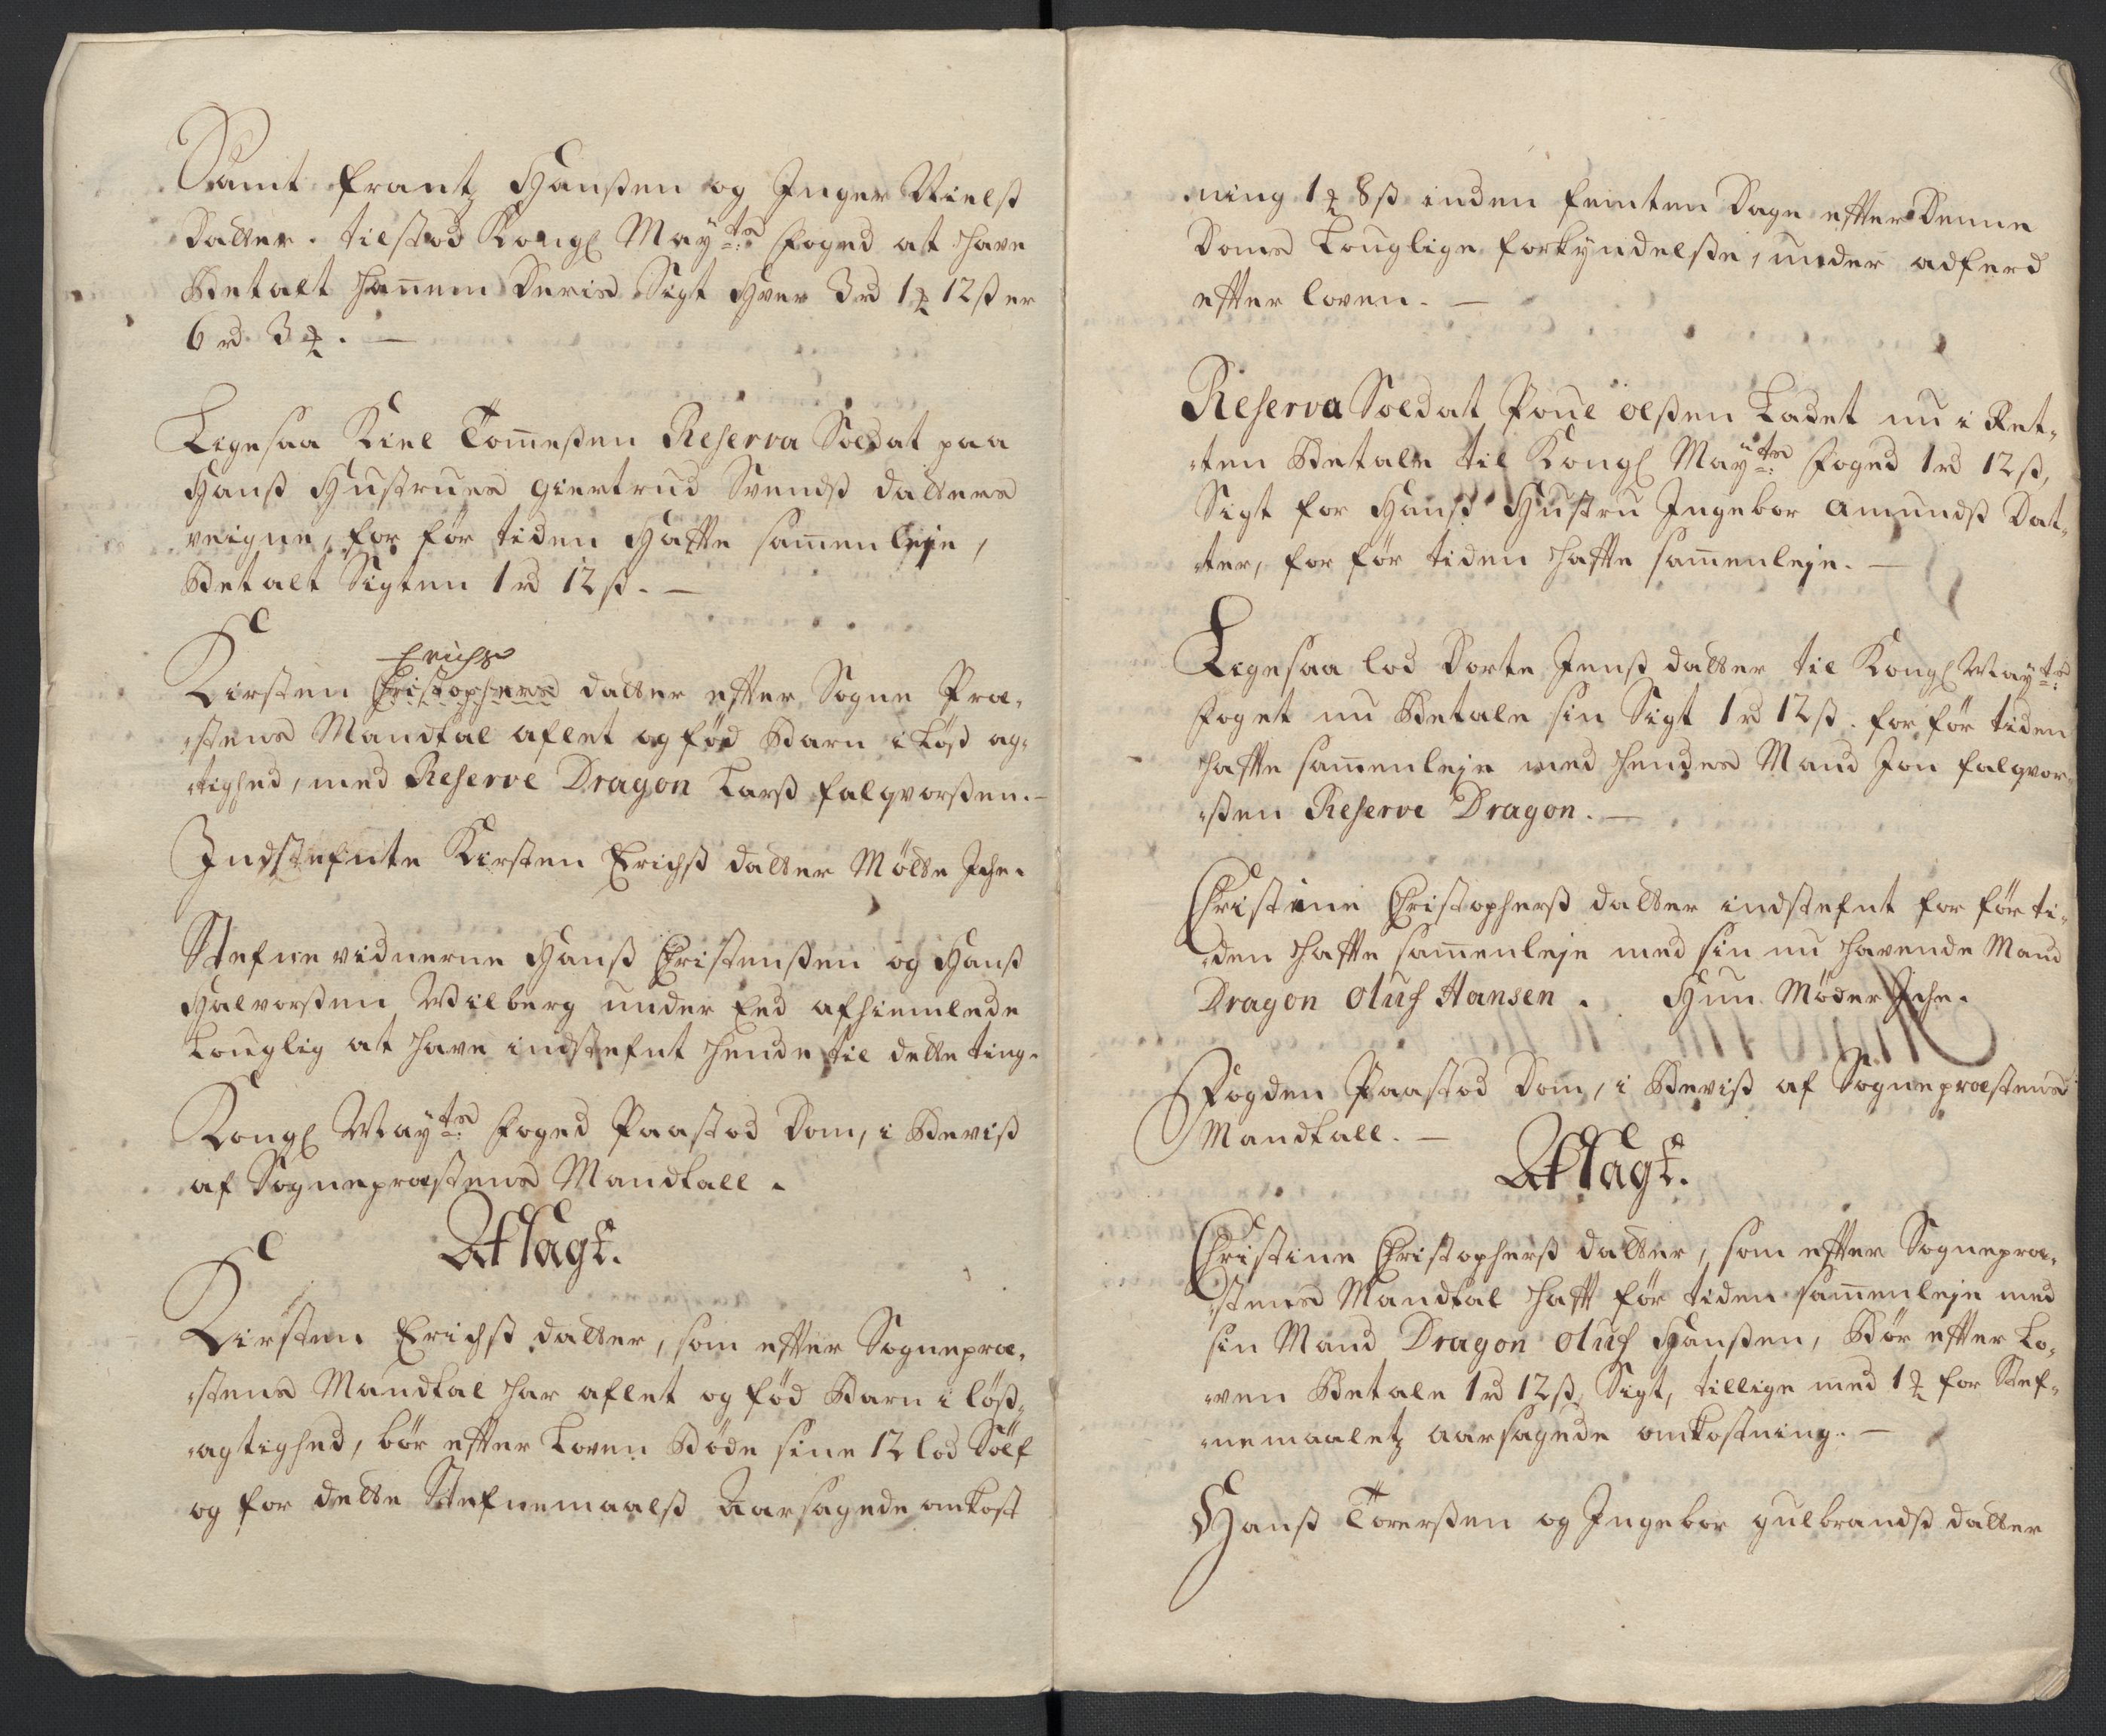 Samt Frantz Hanßen og Inger Nielß
datter. tilstod Kongl May:ts Foged at have
Betalt hannem Deris Sigt Hver 3 rd 1 ꝝ 12 ß er
6 rd 3 ꝝ. —
Ligesaa Kiel Tom̄eßen Reserva Soldat paa
Hanß Hustrues giertrud Svendß datters
veigne, for før tiden Hafte sam̄enleje,
Betalt Sigten 1 rd 12 ß. —
Erichs
Kirsten Christophers datter efter Sogne Præ-
stens Mandtal aflet og fød Barn i Løß ag-
tighed, med Reserve Dragon Larß falqvorßen. —
Indstefnte Kirsten Erichß datter Møtte Iche.
Stefne vidnerne Hanß Christenßen og Hanß
Halvorßen Wilberg under Eed afhiemlede
Louglig at have indstefnt hende til dette ting.
Kongl May:ts Foged Paastod Dom, i Beviß
af Sognepræstens Mandtall.
Aflagt.
Kirsten Erichß datter, som efter Sognepræ-
stens Mandtal har aflet og fød Barn i løß-
agtighed, bør efter Loven Bøde sine 12 lod Sølf
og for dette Stefnemaalß Aarsagede omkost
ning 1 ꝝ 8 ß inden femten Dage efter Denne
Doms Louglige forkyndelße, under adferd
efter loven. —
Reserva Soldat Poul olßen Ladet nu i Ret-
ten Betale til Kongl May:ts Foged 1 rd 12 ß,
Sigt for Hanß Hustru Ingebor Amundß Dat-
ter, for før tiden hafte sam̄enleje. —
Ligesaa lod Dorte Jenß datter til Kongl May:ts
Foget nu Betale sin Sigt 1 rd 12 ß. for før tiden
hafte sam̄enleje med hendes Mand Jon falqvor-
ßen Reserve Dragon. —
Christine Christopherß datter indstefnt for før ti-
den hafte sam̄enleje med sin nu havende Mand
Dragon Oluf Hansen. Hun Møder Iche.
Fogden Paastod Dom, i Beviß af Sognepræstens
Mandtall. —
Aflagt.
Christine Christopherß datter, som efter Sognepræ-
stens Mandtal haft før tiden sam̄enleje med
sin Mand Dragon Oluf Hanßen, Bør efter Lo-
ven Betale 1 rd 12 ß, Sigt, tillige med 1 ꝝ for Stef-
nemaaletz aarsagede omkostning. —
Hanß Torerßen og Ingebor gulbrandß datter